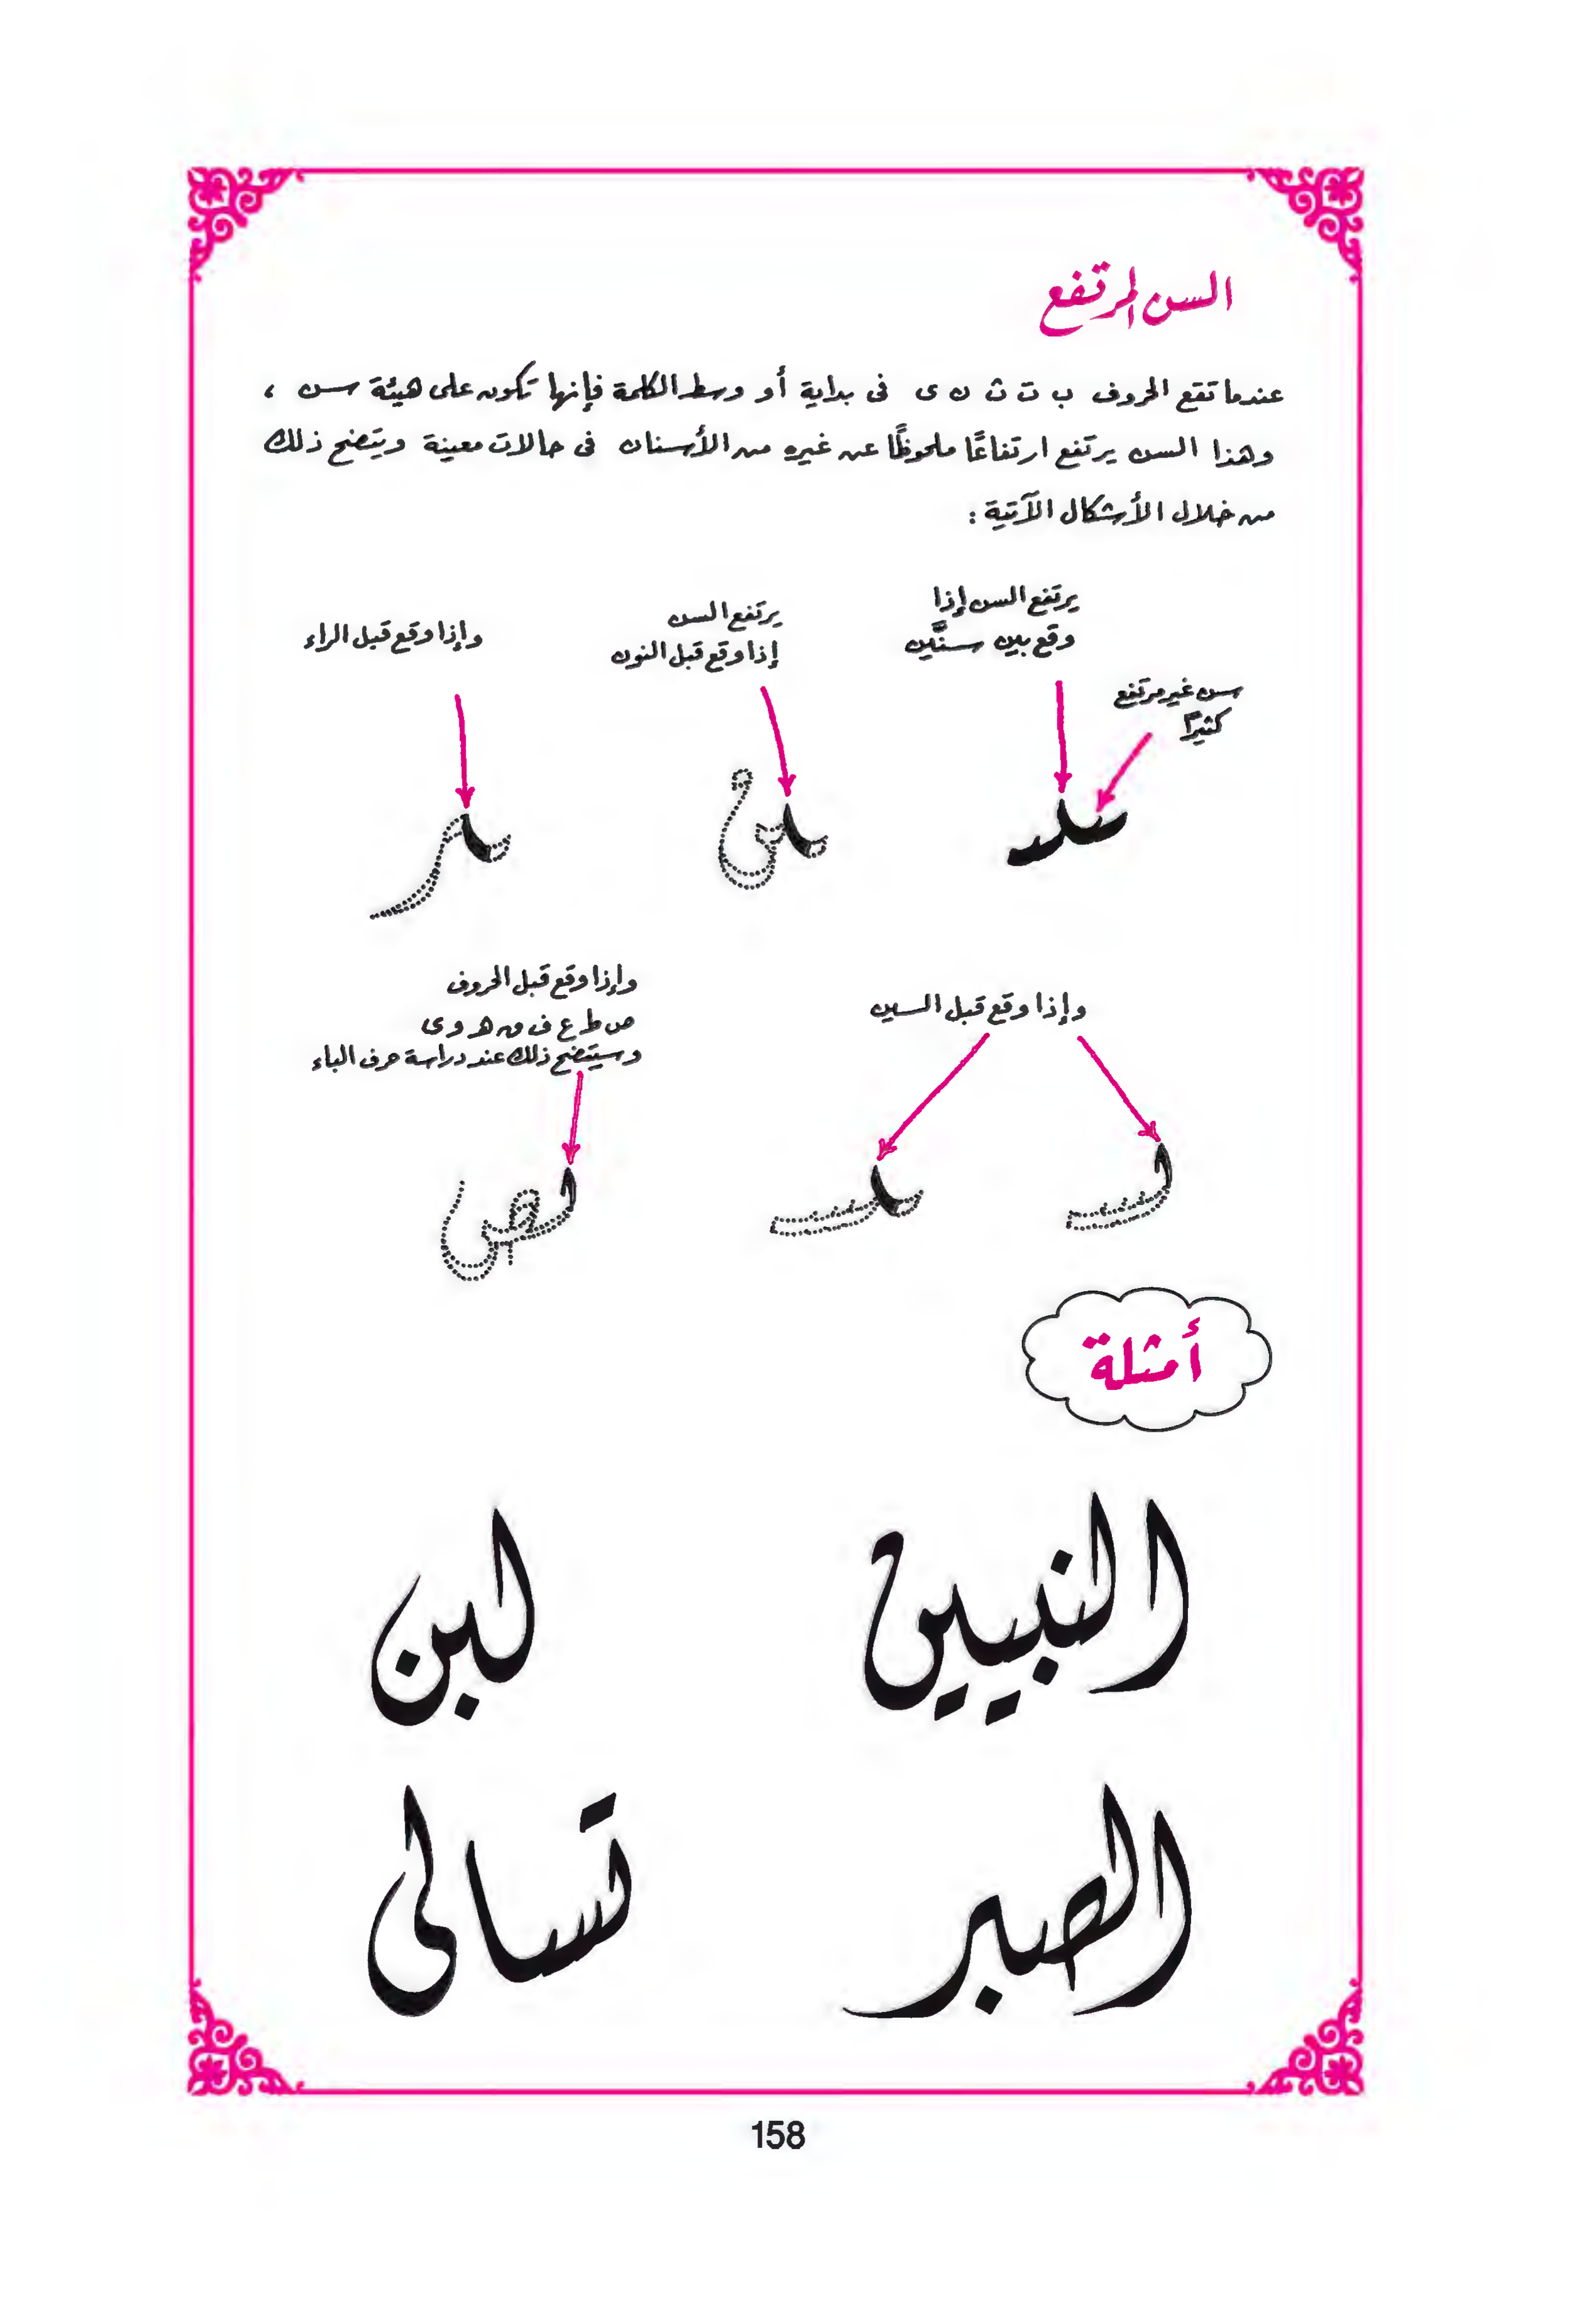 السن المرتفع
عندما تقع الحروف ب ت ث ن ى فى بداية أو وسط الكلمة فإنها تكون على هيئة سن ،
وهذا السن يرتفع ارتفاعًا ملحوظًا عن غيره من الأسنان فى حالات معينة ويتضح ذلك
من خلال الأشكال الآتية :
يرتفع السن إذا
وقع بين سنَّين
سن غير مرتفع
كثيرًا
يرتفع السن
إذا وقع قبل النون
وإذا وقع قبل الراء
وإذا وقع قبل السين
وإذا وقع قبل الحروف
ص ط ع ف ق هـ و ى
وسيتضح ذلك عند دراسة حرف الباء
أمثلة
النبيين
لبن
الصبر
تسالى
158